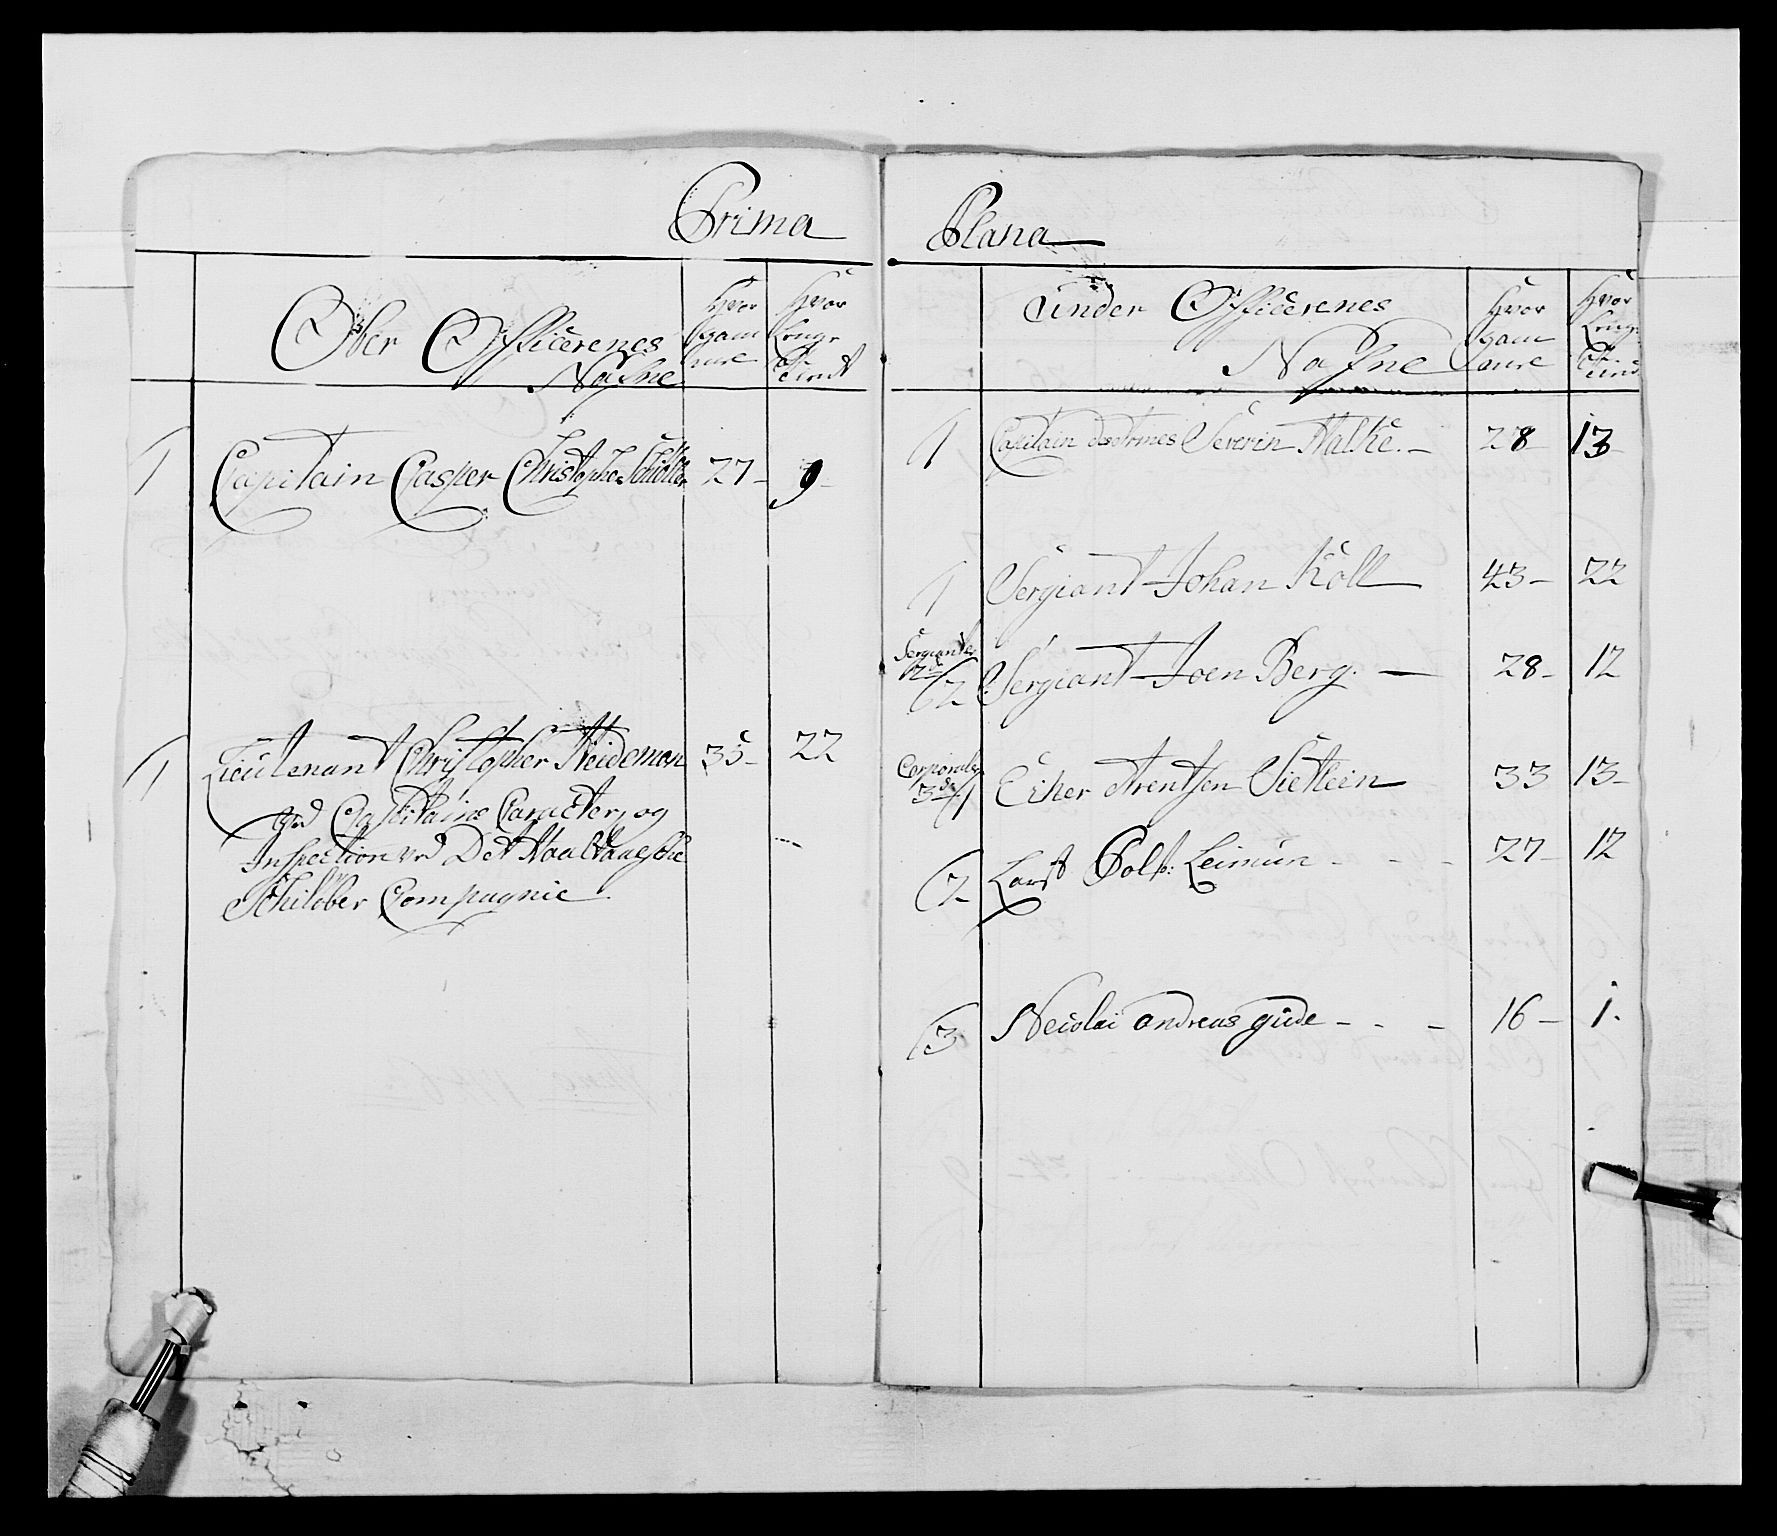 Prima
Ober Officerenes
Nafne
Hvor
gam
Hvor
Lenge
tient
1 Capitain Casper Christopher Schöller 27 - 9 -
1 Lieutenant Christopher Heideman 35 - 22
Capitains Caracter, og
Inspection ved Det
Schilöber Compagnie
Plana
Under Officerenes
Nafne
Hvor
gam
Hvor
Leng
1 Capitain desarmes Severin Halke. - 28 - 13 -
1 Sergiant Johan Köll 43 - 22
Sergianter
2de
2 Sergiant Joen Berg. - 28 - 12
Corporaler
3de
1 Eiler Arentsen Sietlein 33 13 -
2 Lars Pols: Leimün - - - 27 - 12
3 Nicolai andreas gude - - - 16 - 1.